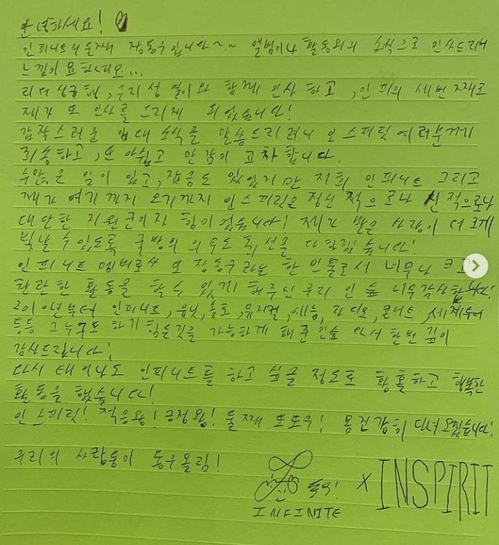 안녕하세요!
인피니트의 둘째 장동우입니다~~ 앨범이나 활동외의 소식으로 인사드리려니
느낌이 묘하네요...
리더 성규형, 우리 성열이와 함께 인사하고, 인피의 세번째로
제가 또 인사를 드리게 되었습니다!
갑작스러운 입대 소식을 말씀드리려니 인스피릿 여러분께
죄송하고, 또 아쉽고 만감이 교차합니다.
수많은 일이 있고, 잡음도 있었지만 저희 인피니트 그리고
제가 여기까지 오기까지 인스피릿은 정신적으로나 심적으로나
대단한 지원군이자 힘이었습니다! 제가 받은 사랑이 더 크게
빛날 수 있도록 국방의 의무도 최선을 다하겠습니다!
인피니트 멤버로서 또 장동우라는 한 인물로서 너무나 크고
찬란한 활동을 할 수 있게 해주신 우리 인숲 너무 감사합니다!
2010년부터 인피니트, 유닛, 솔로, 뮤지컬, 예능, 라디오, 콘서트, 세계투어
등등 그 누구도 하기 힘든것을 가능하게 해준 인숲 다시 한번 깊이
감사드립니다!
다시 태어나도 인피니트를 하고 싶을 정도로 황홀하고 행복한
활동을 했습니다!
인스피릿! 적응왕! 긍정왕! 둘째 또또우! 몸 건강히 다녀오겠습니다!
우리의 사랑둥이 동우올림!
INFINITE
X INSPIRIT